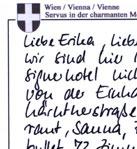 Wien / Vienna / Vienne
Servus in der charmanten M
Liebe Erika, Liebe
wir sind hier i
signehotel nich
von der
härtnerstraße
rant, Sauna, i